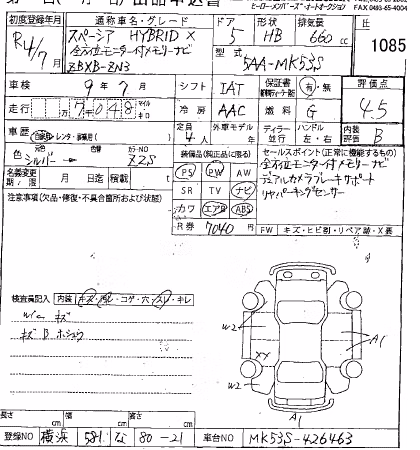 ヒーローメンバーズオートオークション
初度登録年月 通称車名・グレード ドア 形状 排気量 丘
R4/7月 スペーシア HYBRID X 5 HB 660cc 1085
全方位モニター付メモリーナビ 型式
ZBXB-ZN3 5AA-MK53S
車検 9年7月 シフト IAT 保証書 有・無 評価点
走行 7048 マイル km 冷房 AAC 燃料 G 4.5
車歴 自家用・レンタ 定員 4人 外車モデル ディーラー・並行 ハンドル 左・右 内装評価 B
色 元色 シルバー 色替 カラーNO Z2S
装備品(純正品に限る) セールスポイント(正常に機能するもの)
名義変更期限 月 日迄 積載 t
PS PW AW 全方位モニター付メモリーナビ
SR TV ナビ デュアルカメラブレーキサポート
カワ エアB ABS リヤパーキングセンサー
R券 7040
注意事項(欠品・修復・不具合箇所および状態)
FW キズ・ヒビ割・リペア跡・X要
検査員記入 内装 キズ・汚レ・コゲ・穴・スレ・キレ
キズ
キズ B ホシュウ
W2 W2 XY A1 A1
長さ cm 幅 cm 高さ cm
登録NO 横浜 581 な 80-21 車台NO MK53S-426463